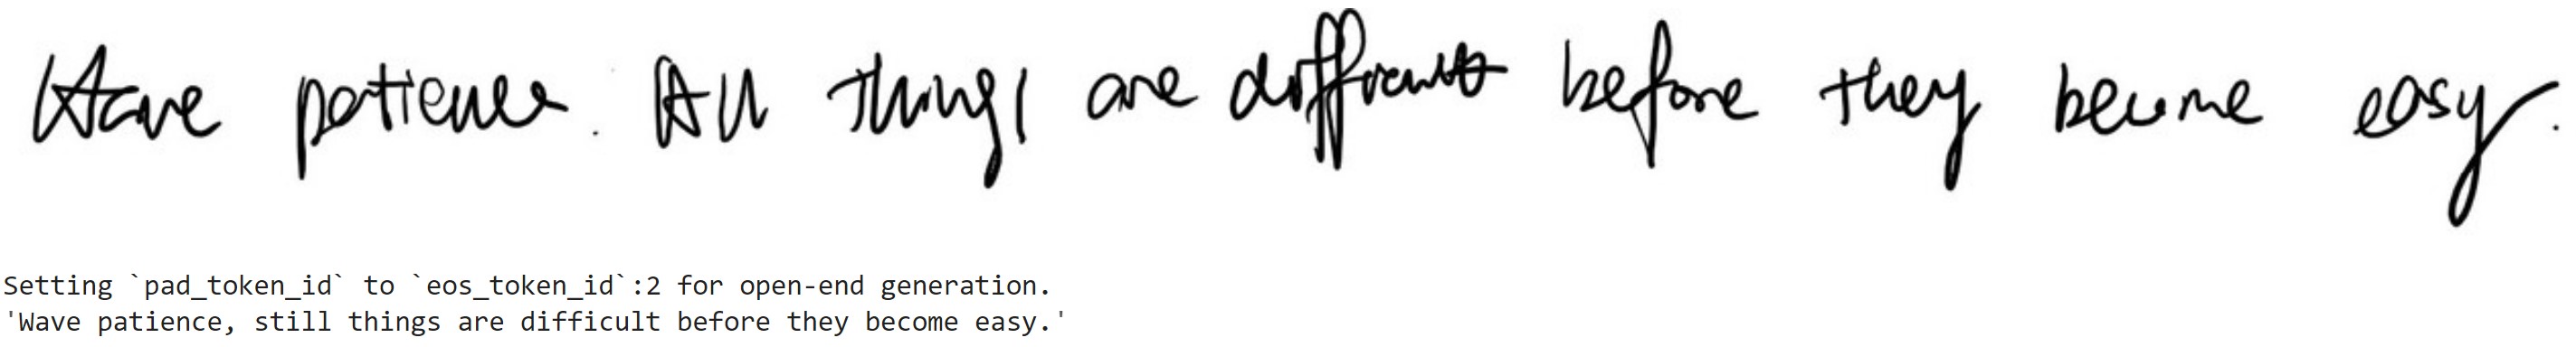 Have patience. All things are difficult before they become easy.
Setting `pad_token_id` to `eos_token_id`:2 for open-end generation.
'Wave patience, still things are difficult before they become easy.'